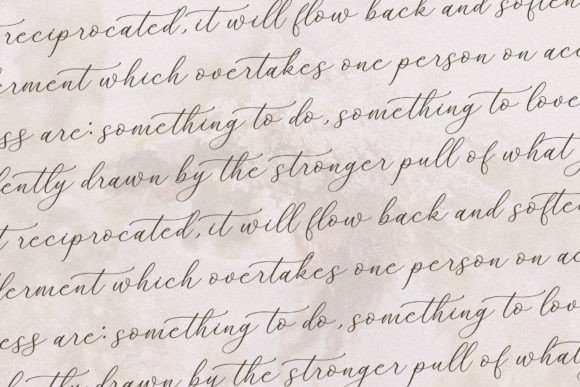 reciprocated, it will flow back and soften
derment which overtakes one person on acc
ess are: something to do, something to love
lently drawn by the stronger pull of what y
t reciprocated, it will flow back and soften
derment which overtakes one person on acc
ess are: something to do, something to lov
lently drawn by the stronger pull of what